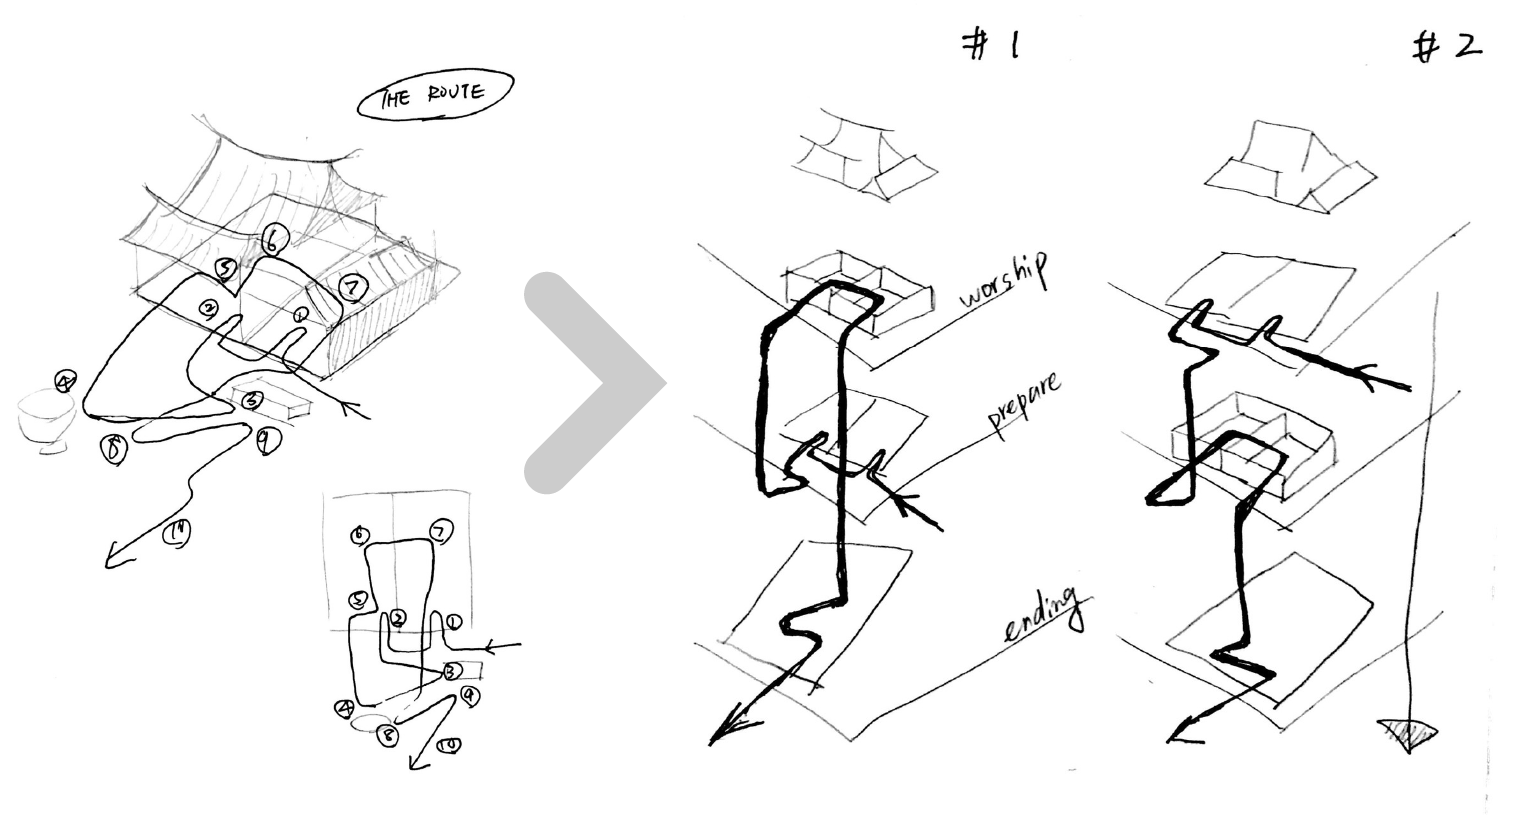 THE ROUTE
⑥
⑤
⑦
②
①
④
③
⑧
⑨
⑥
⑦
⑤
②
①
③
④
⑨
⑧
⑩
# 1
worship
prepare
ending
# 2